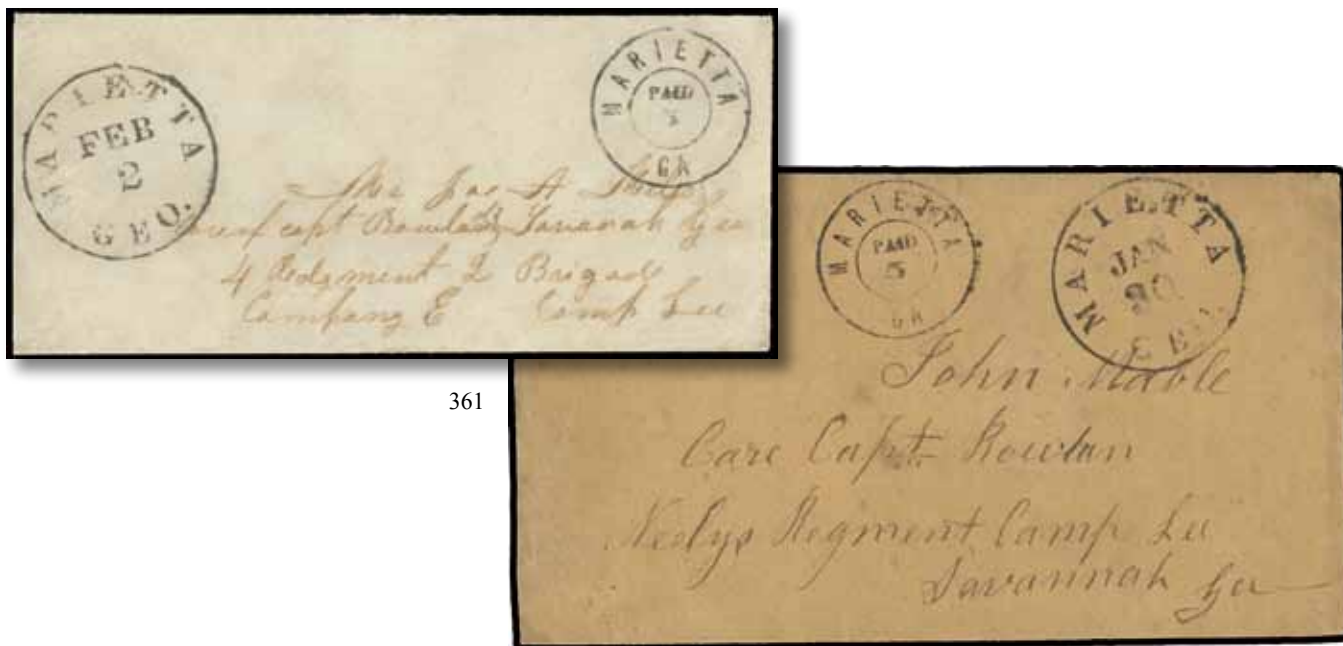 MARIETTA
FEB
2
GEO.
MARIETTA
PAID
GA
Mr Jas A
capt Rowlan Savanah Geo
4 Redgment 2 Brigade
Company E Camp Lee
361
MARIETTA
PAID
5
GA
MARIETTA
JAN
30
GEO.
John Mable
Care Capt. Rowlan
Neelys Regment Camp Lee
Savannah Ga